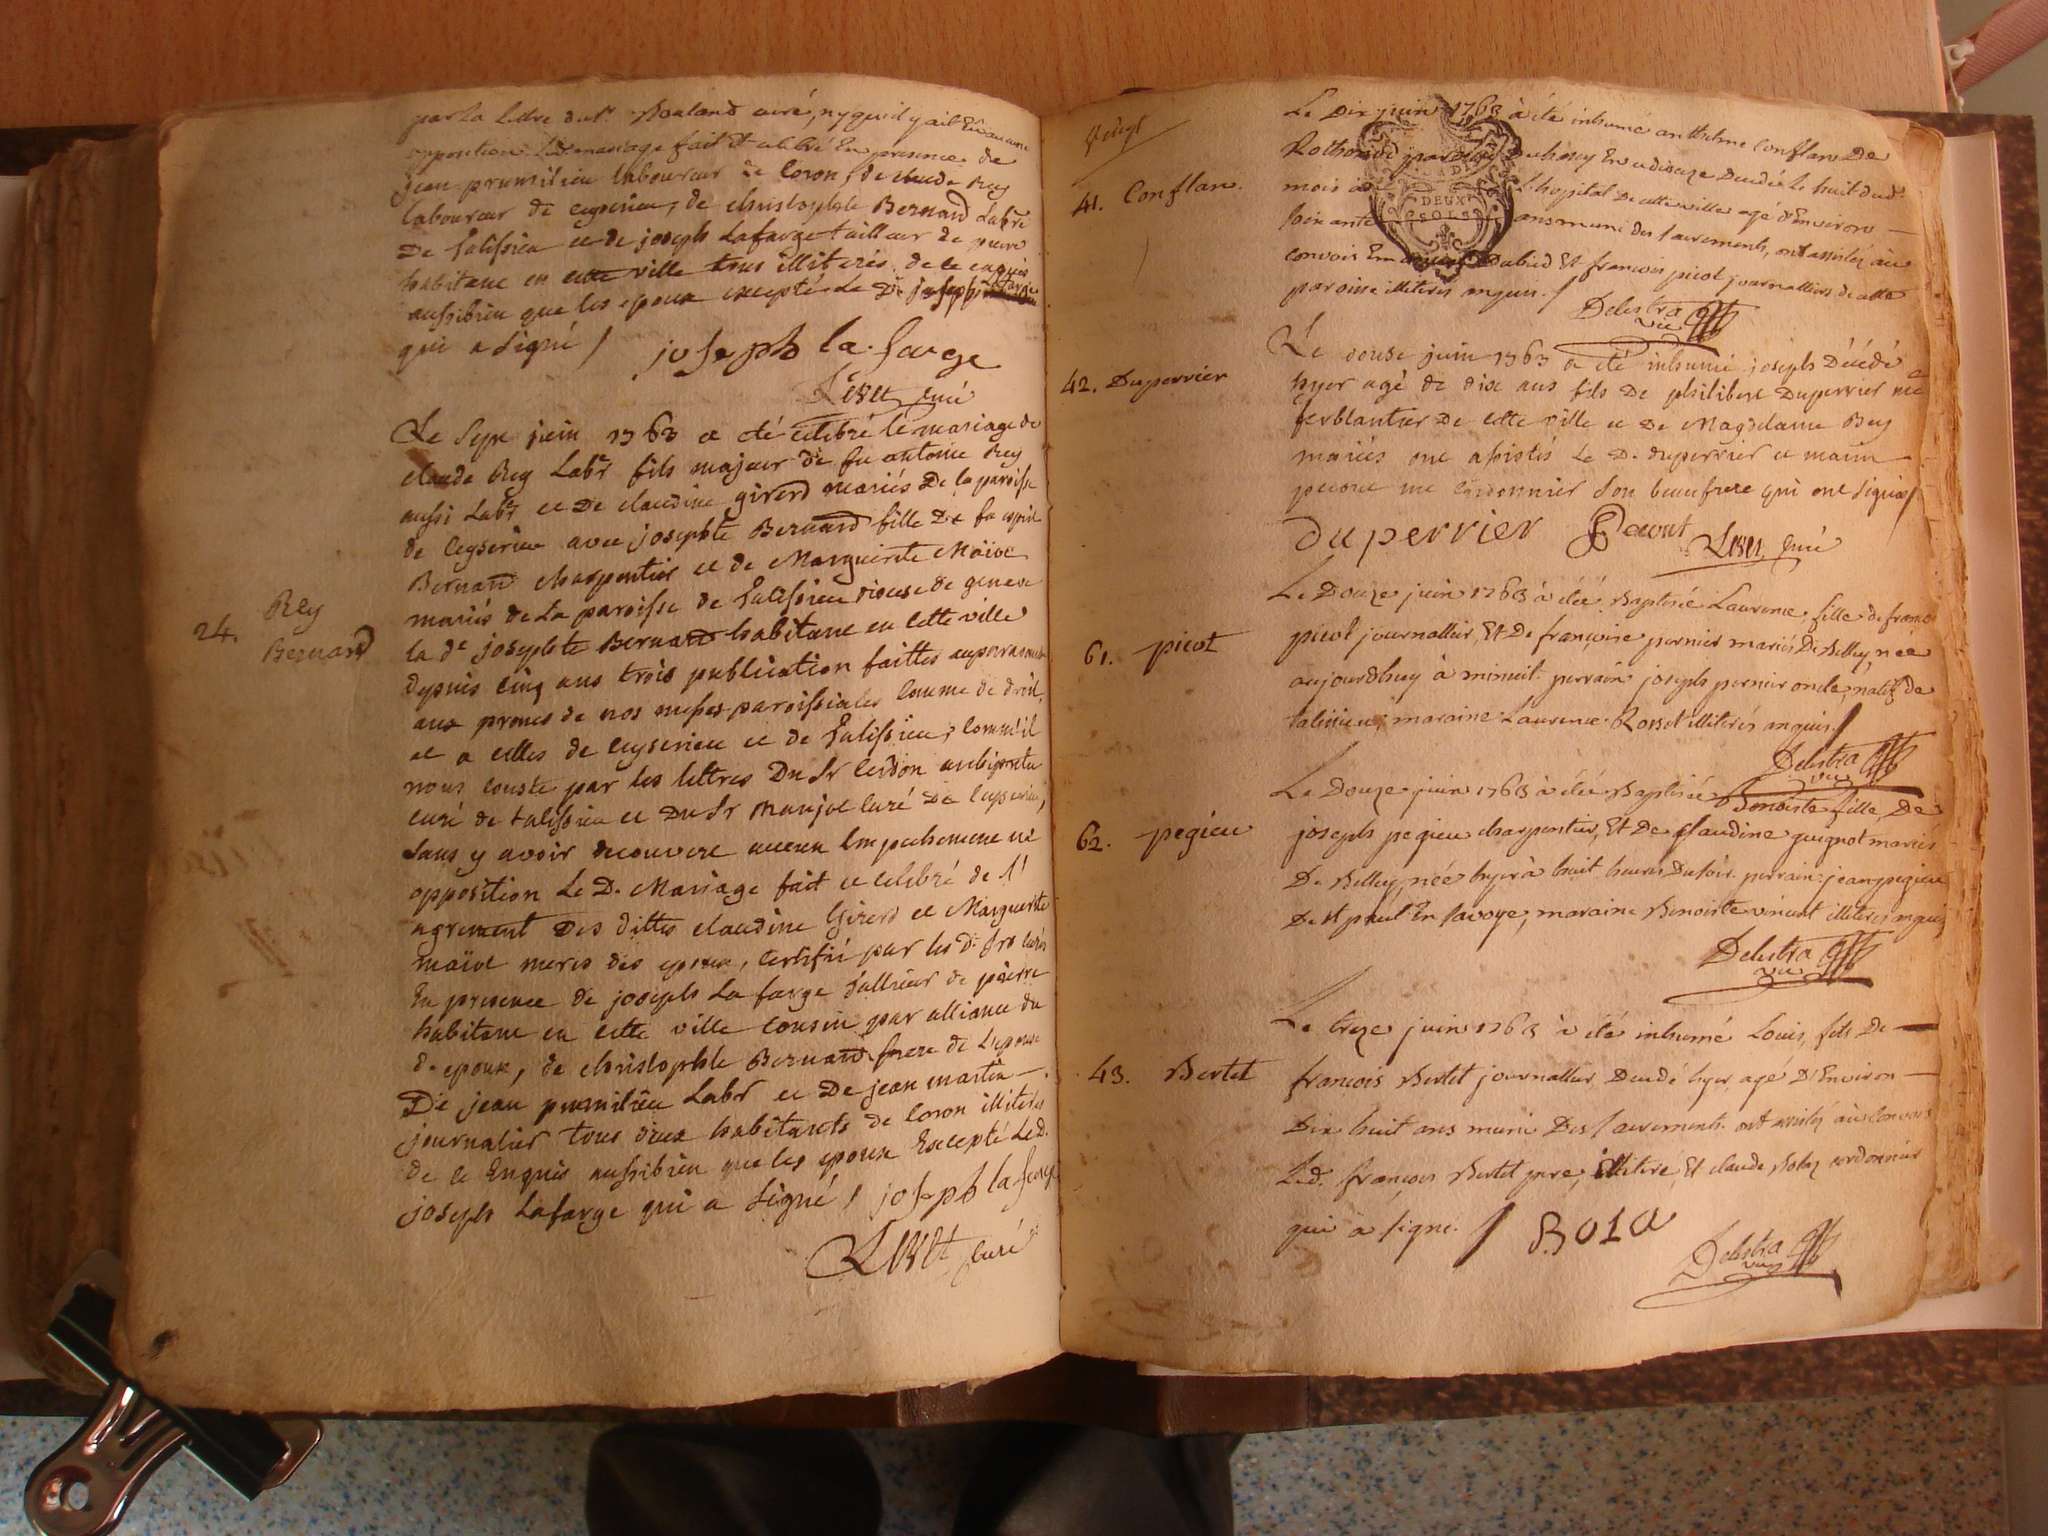 par la lettre du sr. Roland curé, ny qu'il y ait Eu aucune
opposition led. mariage fait et celebré En presence de
jean prumilieu laboureur de Coron, de claude Rey
laboureur de ceyserieu, de christophle Bernard Labr
De Talissieu et de joseph Lafarge tailleur de pierre
habitant en cette ville tous illiterés de ce enquis
aussibien que les epoux excepté Le D. joseph Lafarge
qui a signé / joseph la farge
curé
Le Sept juin 1763 a eté celebré le mariage de
claude Rey Labr. fils majeur de fu antoine Rey
aussi Labr. et De claudine girerd mariés De la paroisse
de Ceyserieu avec josephte Bernard fille De fu
Bernard charpentier et de Marguerite Moïne
mariés de La paroisse de Talissieu diocese de geneve
la de josephte Bernard habitant en cette ville
depuis cinq ans trois publication faittes auparavant
aux prones de nos messes paroissiales comme de droit,
et a celles de ceyserieu et de Talissieu, comm'il
nous conste par les lettres Du Sr Cerdon archipretre
curé de talissieu et Du Sr Maujot curé De Ceyserieu,
sans y avoir decouvert aucun Empechement ni
opposition Le D. Mariage fait et celebré de l'
agrement Des dittes claudine Girerd et Marguerite
moïne meres des epoux, certifié par les d. srs curés
En presence de joseph La farge tallieur de pierre
habitant en cette ville cousin par alliance du
d. epoux, de christophle Bernard frere de L'epouse
De jean prumilieu Labr et De jean martin
journalier tous deux habitants de Coron illiterés
de ce Enquis aussibien que les epoux Excepté Le D.
joseph Lafarge qui a signé / joseph la farge
curé
24. Rey
Bernard
41. Conflan.
Le Dix juin 1763 à été inhumé anthelme Conflan De
Rothonod paroisse En ce dioceze Decedé le huit dud.
mois à l'hopital De cette ville agé d'Environ
soixante ans muni des sacrements, ont assisté au
convois Et francois picot journalliers de cette
paroisse illiteres enquis. / Delestra
vic
42. Duperrier
Le douse juin 1763 a eté inhumé joseph Décédé
hyer agé de dix ans fils De philibert Duperrier me
ferblantier De cette ville et De Magdelaine Bey
mariés ont assistés Le D. duperrier et
me Cordonnier son beaufrere qui ont signés /
duperrier Decout curé
61. picot
Le Douze juin 1763 à été Baptisée Laurence, fille de francois
picot journallier, Et De françoise pernier mariés De Belley, née
aujourdhuy à minuit. parrain joseph pernier oncle, natif de
talissieu, maraine Laurence Rosset illiterés enquis /
Delestra
vic
62. pegieu
Le Douze juin 1763 à été Baptisée Benoiste fille, De
joseph pegieu charpentier, Et De Claudine guignot mariés
De Belley, née hyer à huit heures Du soir. parrain jean pegieu
De st paul En savoye, maraine Benoiste vincent illiteres enquis
Delestra
vic
43. Bertet
Le treze juin 1763 à été inhumé Louis, fils De
francois Bertet journallier, Decedé hyer, agé D'Environ
Dix huit ans muni Des sacrements. ont assisté au Convois
Led. françois Bertet pere, illitere, Et claude Bolaz cordonnier
qui a signé. / BOLA
Delestra
vic
DEUX
SOLS